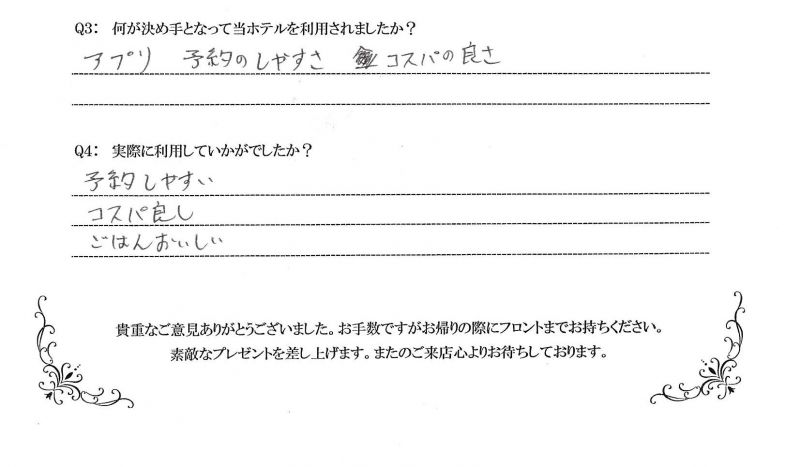 Q3： 何が決め手となって当ホテルを利用されましたか？
アプリ 予約のしやすさ コスパの良さ
Q4： 実際に利用していかがでしたか？
予約しやすい
コスパ良し
ごはんおいしい
貴重なご意見ありがとうございました。お手数ですがお帰りの際にフロントまでお持ちください。
素敵なプレゼントを差し上げます。またのご来店心よりお待ちしております。